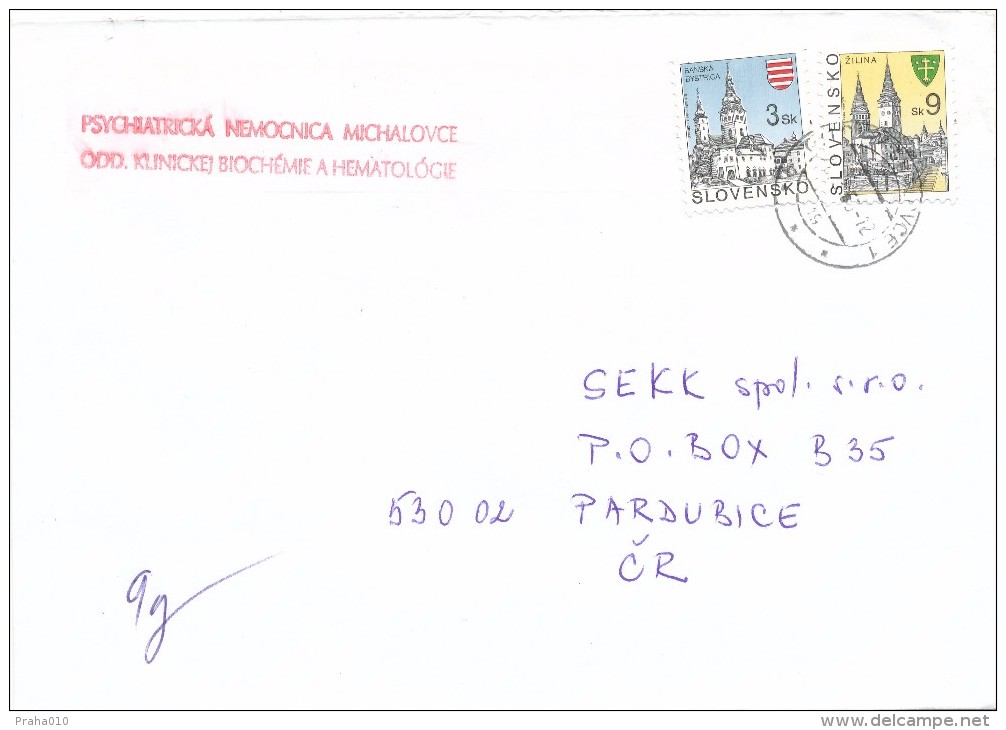 PSYCHIATRICKÁ NEMOCNICA MICHALOVCE
ODD. KLINICKEJ BIOCHÉMIE A HEMATOLÓGIE
BANSKÁ
BYSTRICA
3 Sk
SLOVENSKO
ŽILINA
Sk 9
SLOVENSKO
VCE 1
SEKK spol. s.r.o.
P.O. BOX B 35
530 02 PARDUBICE
ČR
9g
Praha010
www.delcampe.net